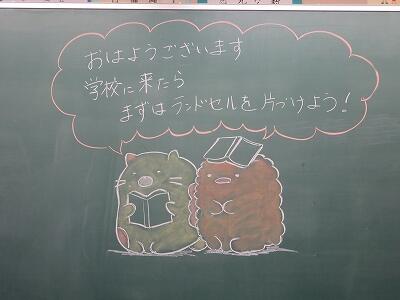 おはようございます
学校に来たら
まずはランドセルを片づけよう!